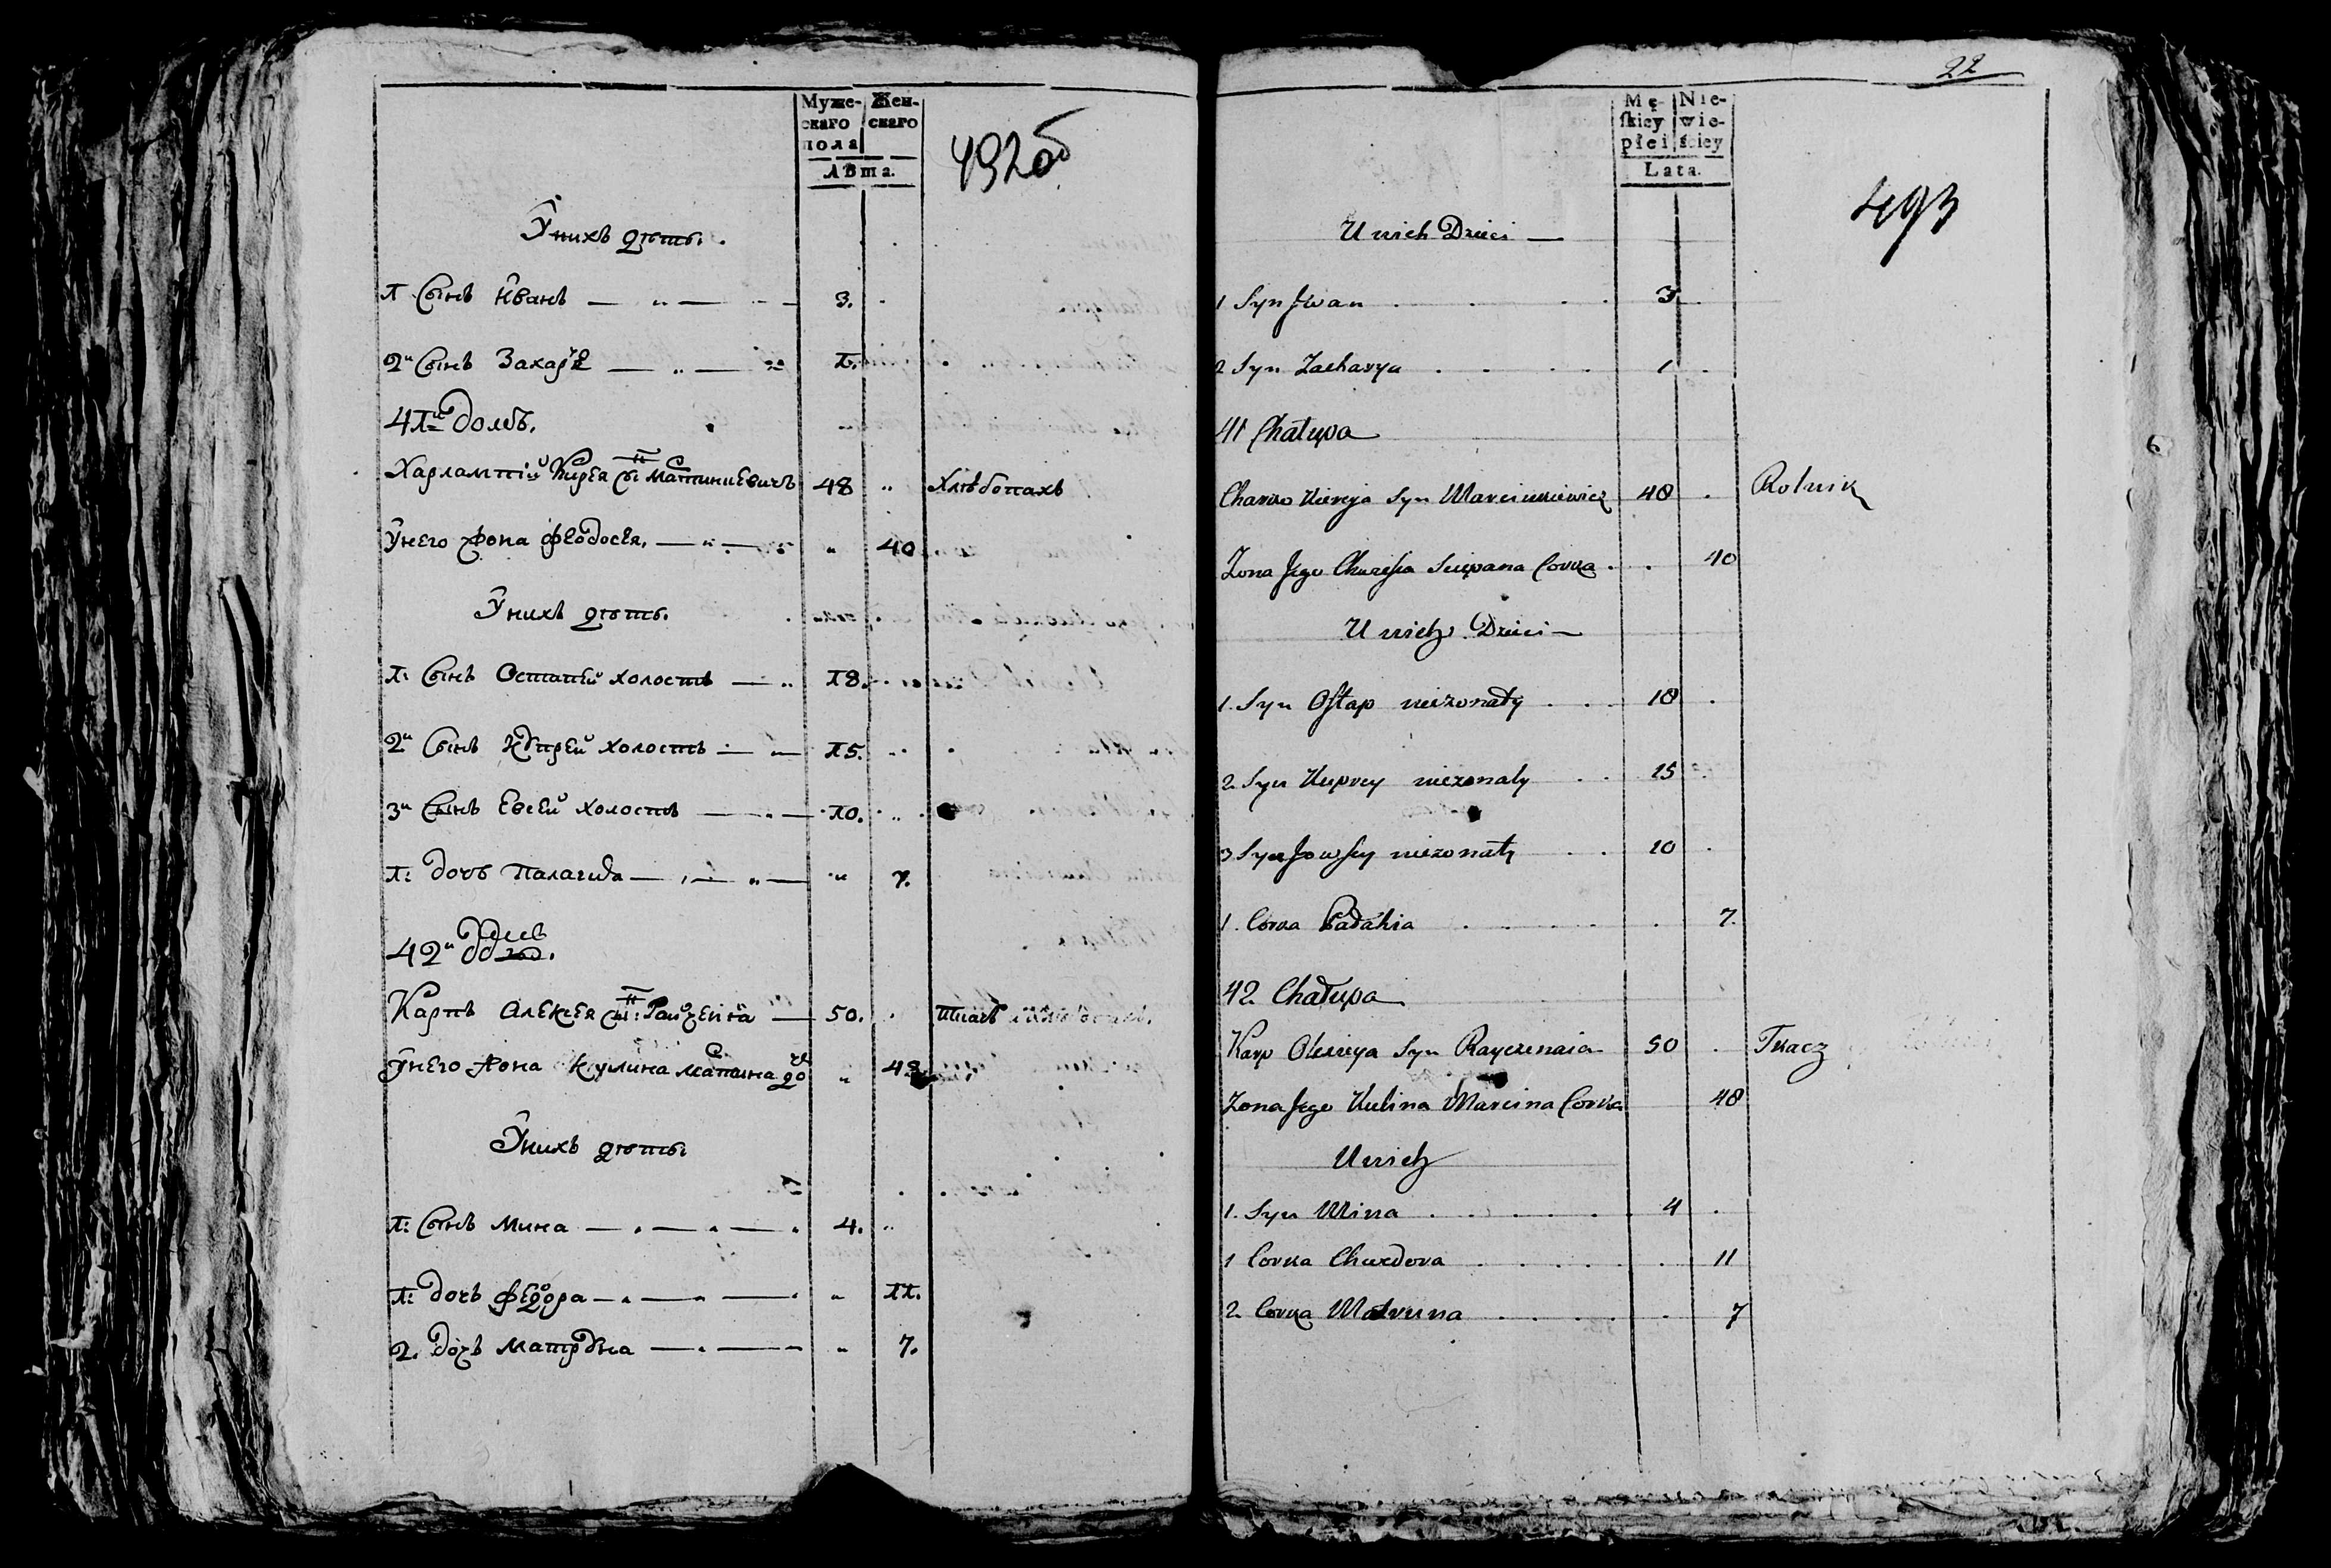 Муже-
скаго
пола
Жен-
скаго
Лѣта.
492об
Унихъ дѣти.
1 Сынъ Иванъ 3.
2й Сынъ Захарѣ 1.
41й домъ.
Харлампій Кирея Сы Мацинкевичъ 48 Хлѣбопахъ
Унего жона Феодосея. 40
Унихъ дѣти.
1: Сынъ Остапей холостъ 18.
2й Сынъ Купрей холостъ 15.
3й Сынъ Евсей холостъ 10.
1: дочь Палагида 7.
42й домъ.
Карпъ Алексея сы: 50. ткачъ
Унего жона Кулина 48
Унихъ дѣти
1: Сынъ Мина 4.
1: дочь Федора 11.
2. дочь Матруна 7.
22
Mę-
ſkiey
płci
Nie-
wie-
ściey
Lata.
493
U nich Dzieci
1 Syn Jwan 3
2 Syn Zacharya 1
41 Chałupa
Charko Kireja Syn Marcinkiewicz 48 Rolnik
Zona Jego Sciepana Corka 40
U nich Dzieci
1. Syn Oſtap niezonaty 18
2. Syn Kuprey niezonaty 15
3 Syn Jowſey niezonaty 10
1. Corka Padahia 7.
42. Chałupa
Karp Olexieya Syn Rayczenaia 50 Tkacz
Zona Jego Kulina Marcina Corka 48
U nich
1. Syn Mina 4
1 Corka Chwedora 11
2. Corka Matruna 7